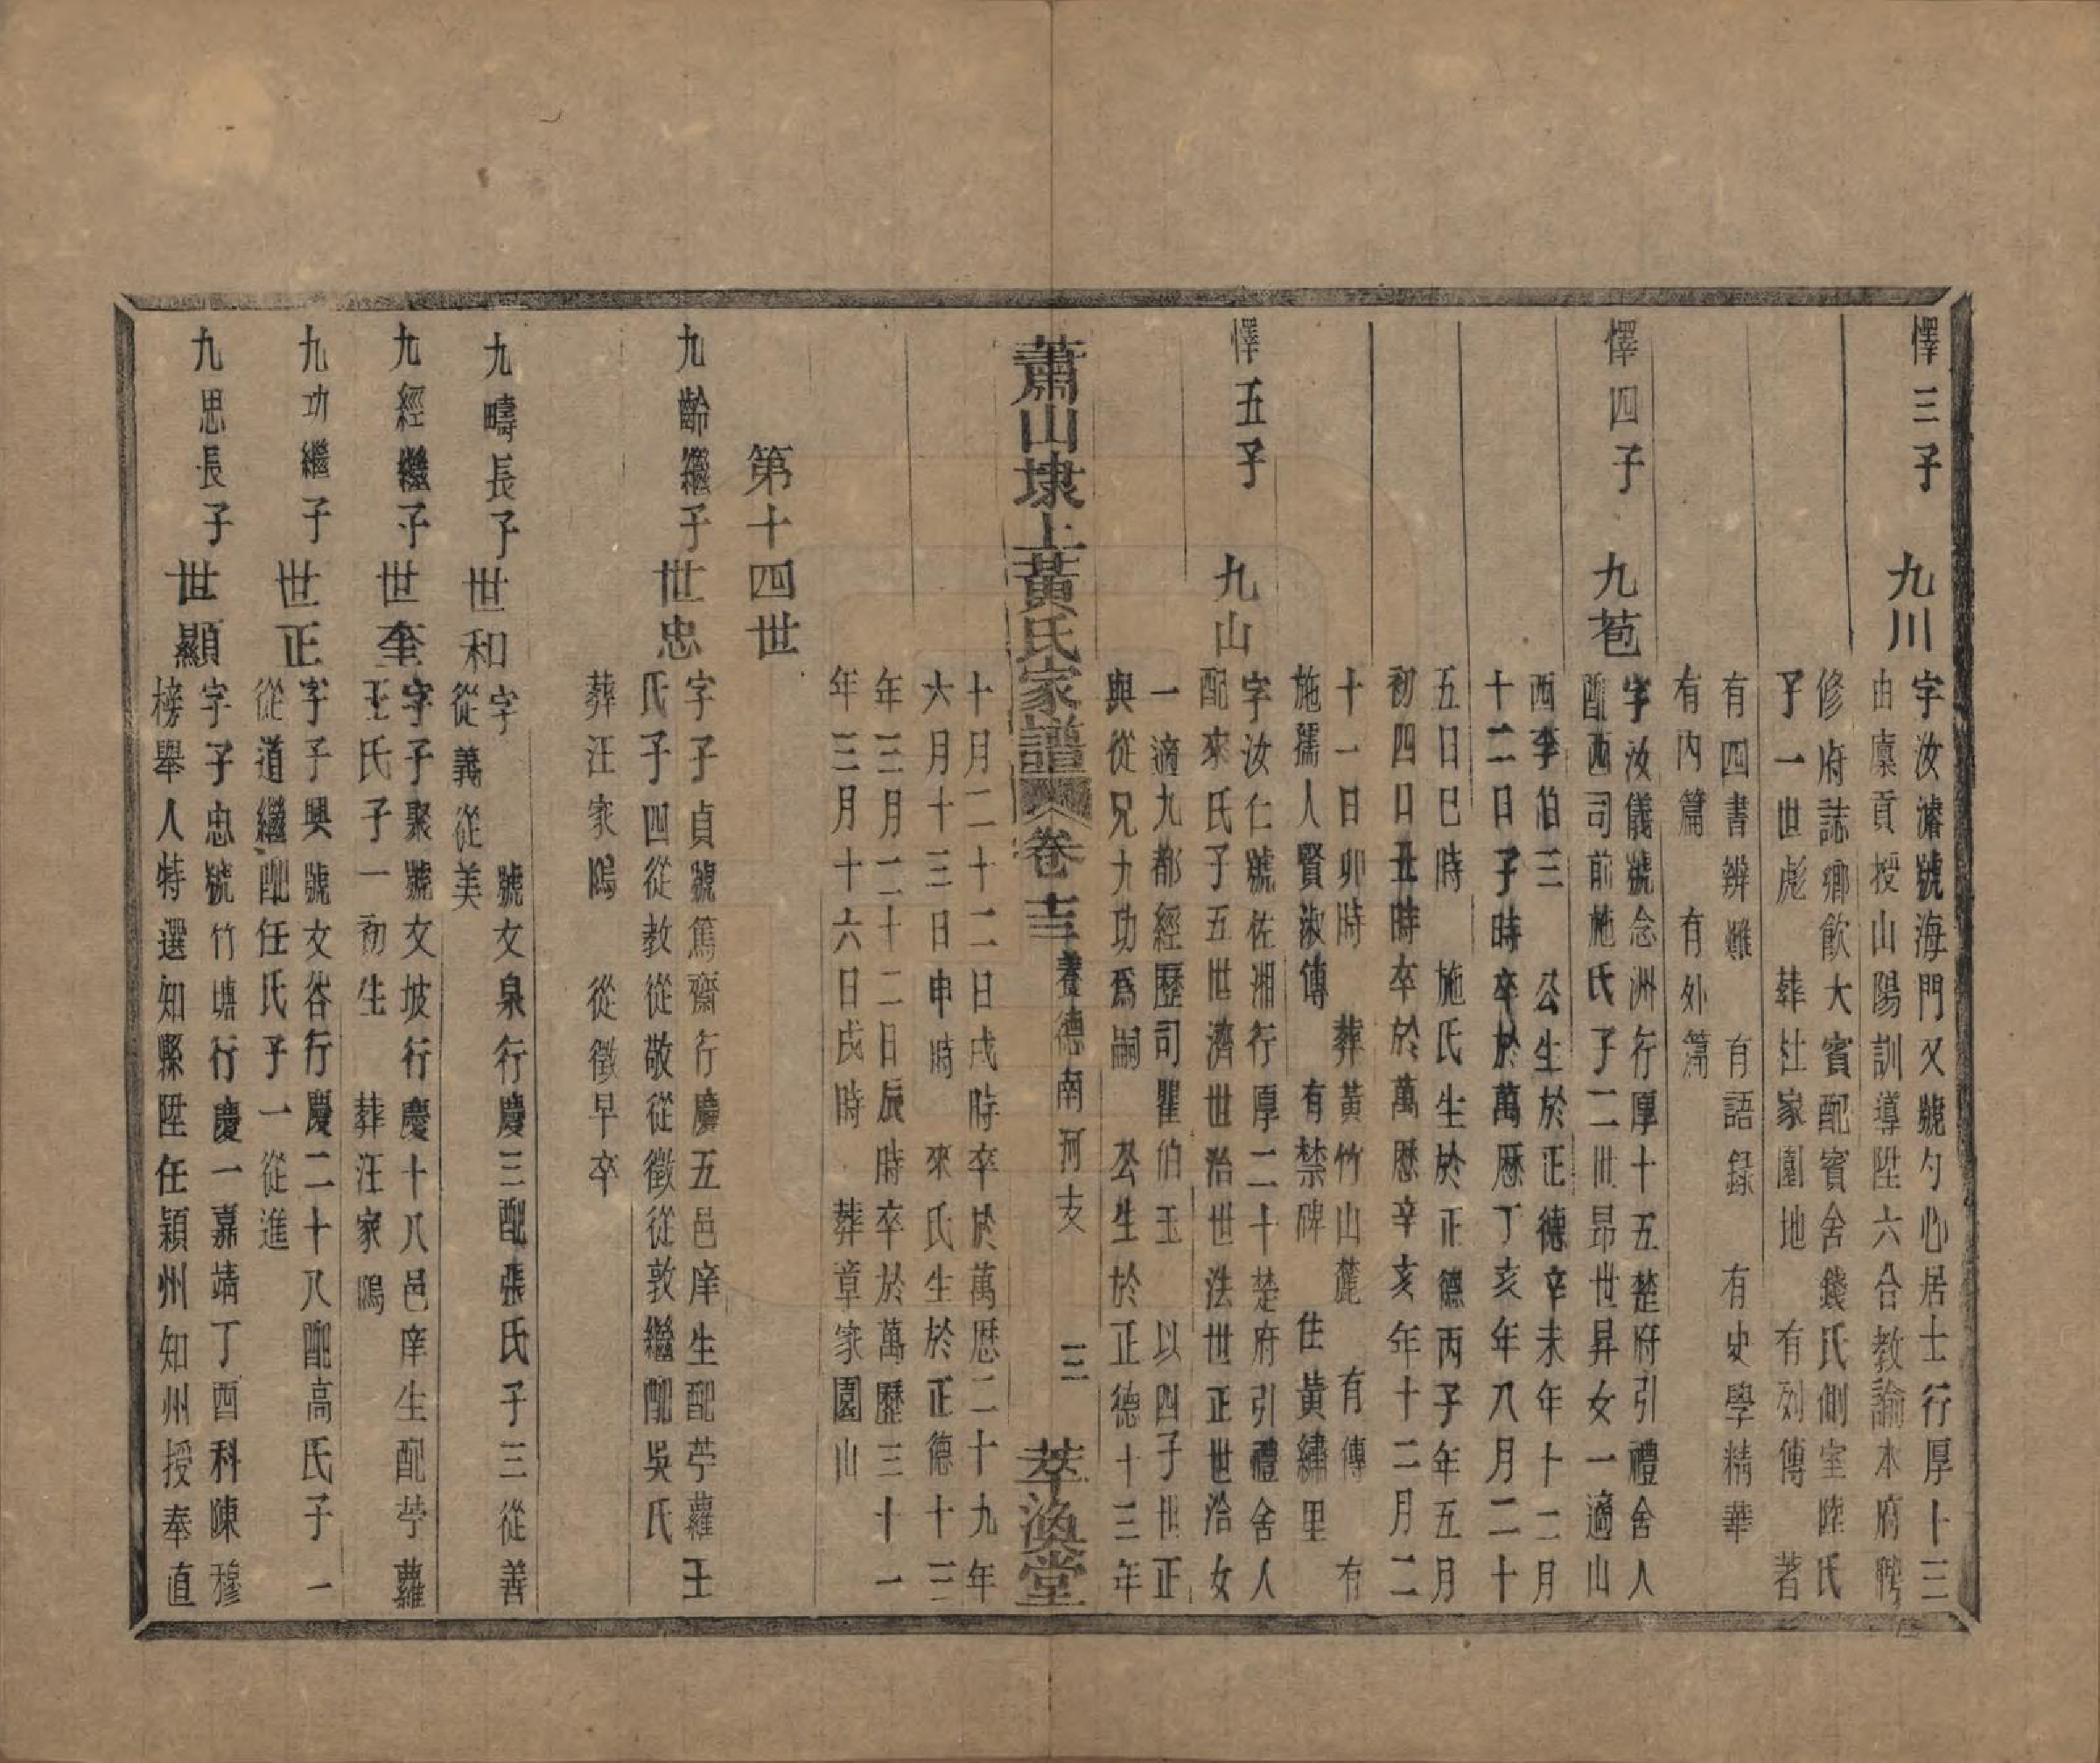 懌三子
九川
字汝濬號海門又號勺心居士行厚十三
由廩貢授山陽訓導陞六合教諭本府聘
修府誌鄉飲大賓配賓舍錢氏側室陸氏
子一世彪　葬杜家園地　有列傳　著
有四書辨難　有語録　有史學精華
有內篇　有外篇
懌四子
九苞
字汝儀號念洲行厚十五楚府引禮舍人
配西司前施氏子二世昂世昇女一適山
西李伯三　公生於正德辛未年十二月
十二日子時卒於萬厯丁亥年八月二十
五日巳時　施氏生於正德丙子年五月
初四日丑時卒於萬厯辛亥年十二月二
十一日卯時　葬黃竹山麓　有傳　有
施孺人賢淑傳　有禁碑　住黃繡里
懌五子
九山
字汝仁號佐湘行厚二十楚府引禮舍人
配來氏子五世濟世治世法世正世洽女
一適九都經歷司瞿伯玉　以四子世正
與從兄九功爲嗣　公生於正德十三年
十月二十二日戌時卒於萬厯二十九年
六月十三日申時　來氏生於正德十三
年三月二十二日辰時卒於萬歷三十一
年三月十六日戌時　葬章家園山
蕭山埭上黃氏家譜　卷十三　養德南河支　三　萃渙堂
第十四世
九齡繼子
世忠
字子貞號篤齋行慶五邑庠生配苧蘿王
氏子四從教從敬從徵從敦繼配吳氏
葬汪家隖　從徵早卒
九疇長子
世和
字　　號文泉行慶三配張氏子三從善
從義從美
九經繼子
世奎
字子聚號文坡行慶十八邑庠生配苧蘿
王氏子一初生　葬汪家隖
九功繼子
世正
字子興號文谷行慶二十八配高氏子一
從道繼配任氏子一從進
九思長子
世顯
字子忠號竹塘行慶一嘉靖丁酉科陳穆
榜舉人特選知縣陞任穎州知州授奉直